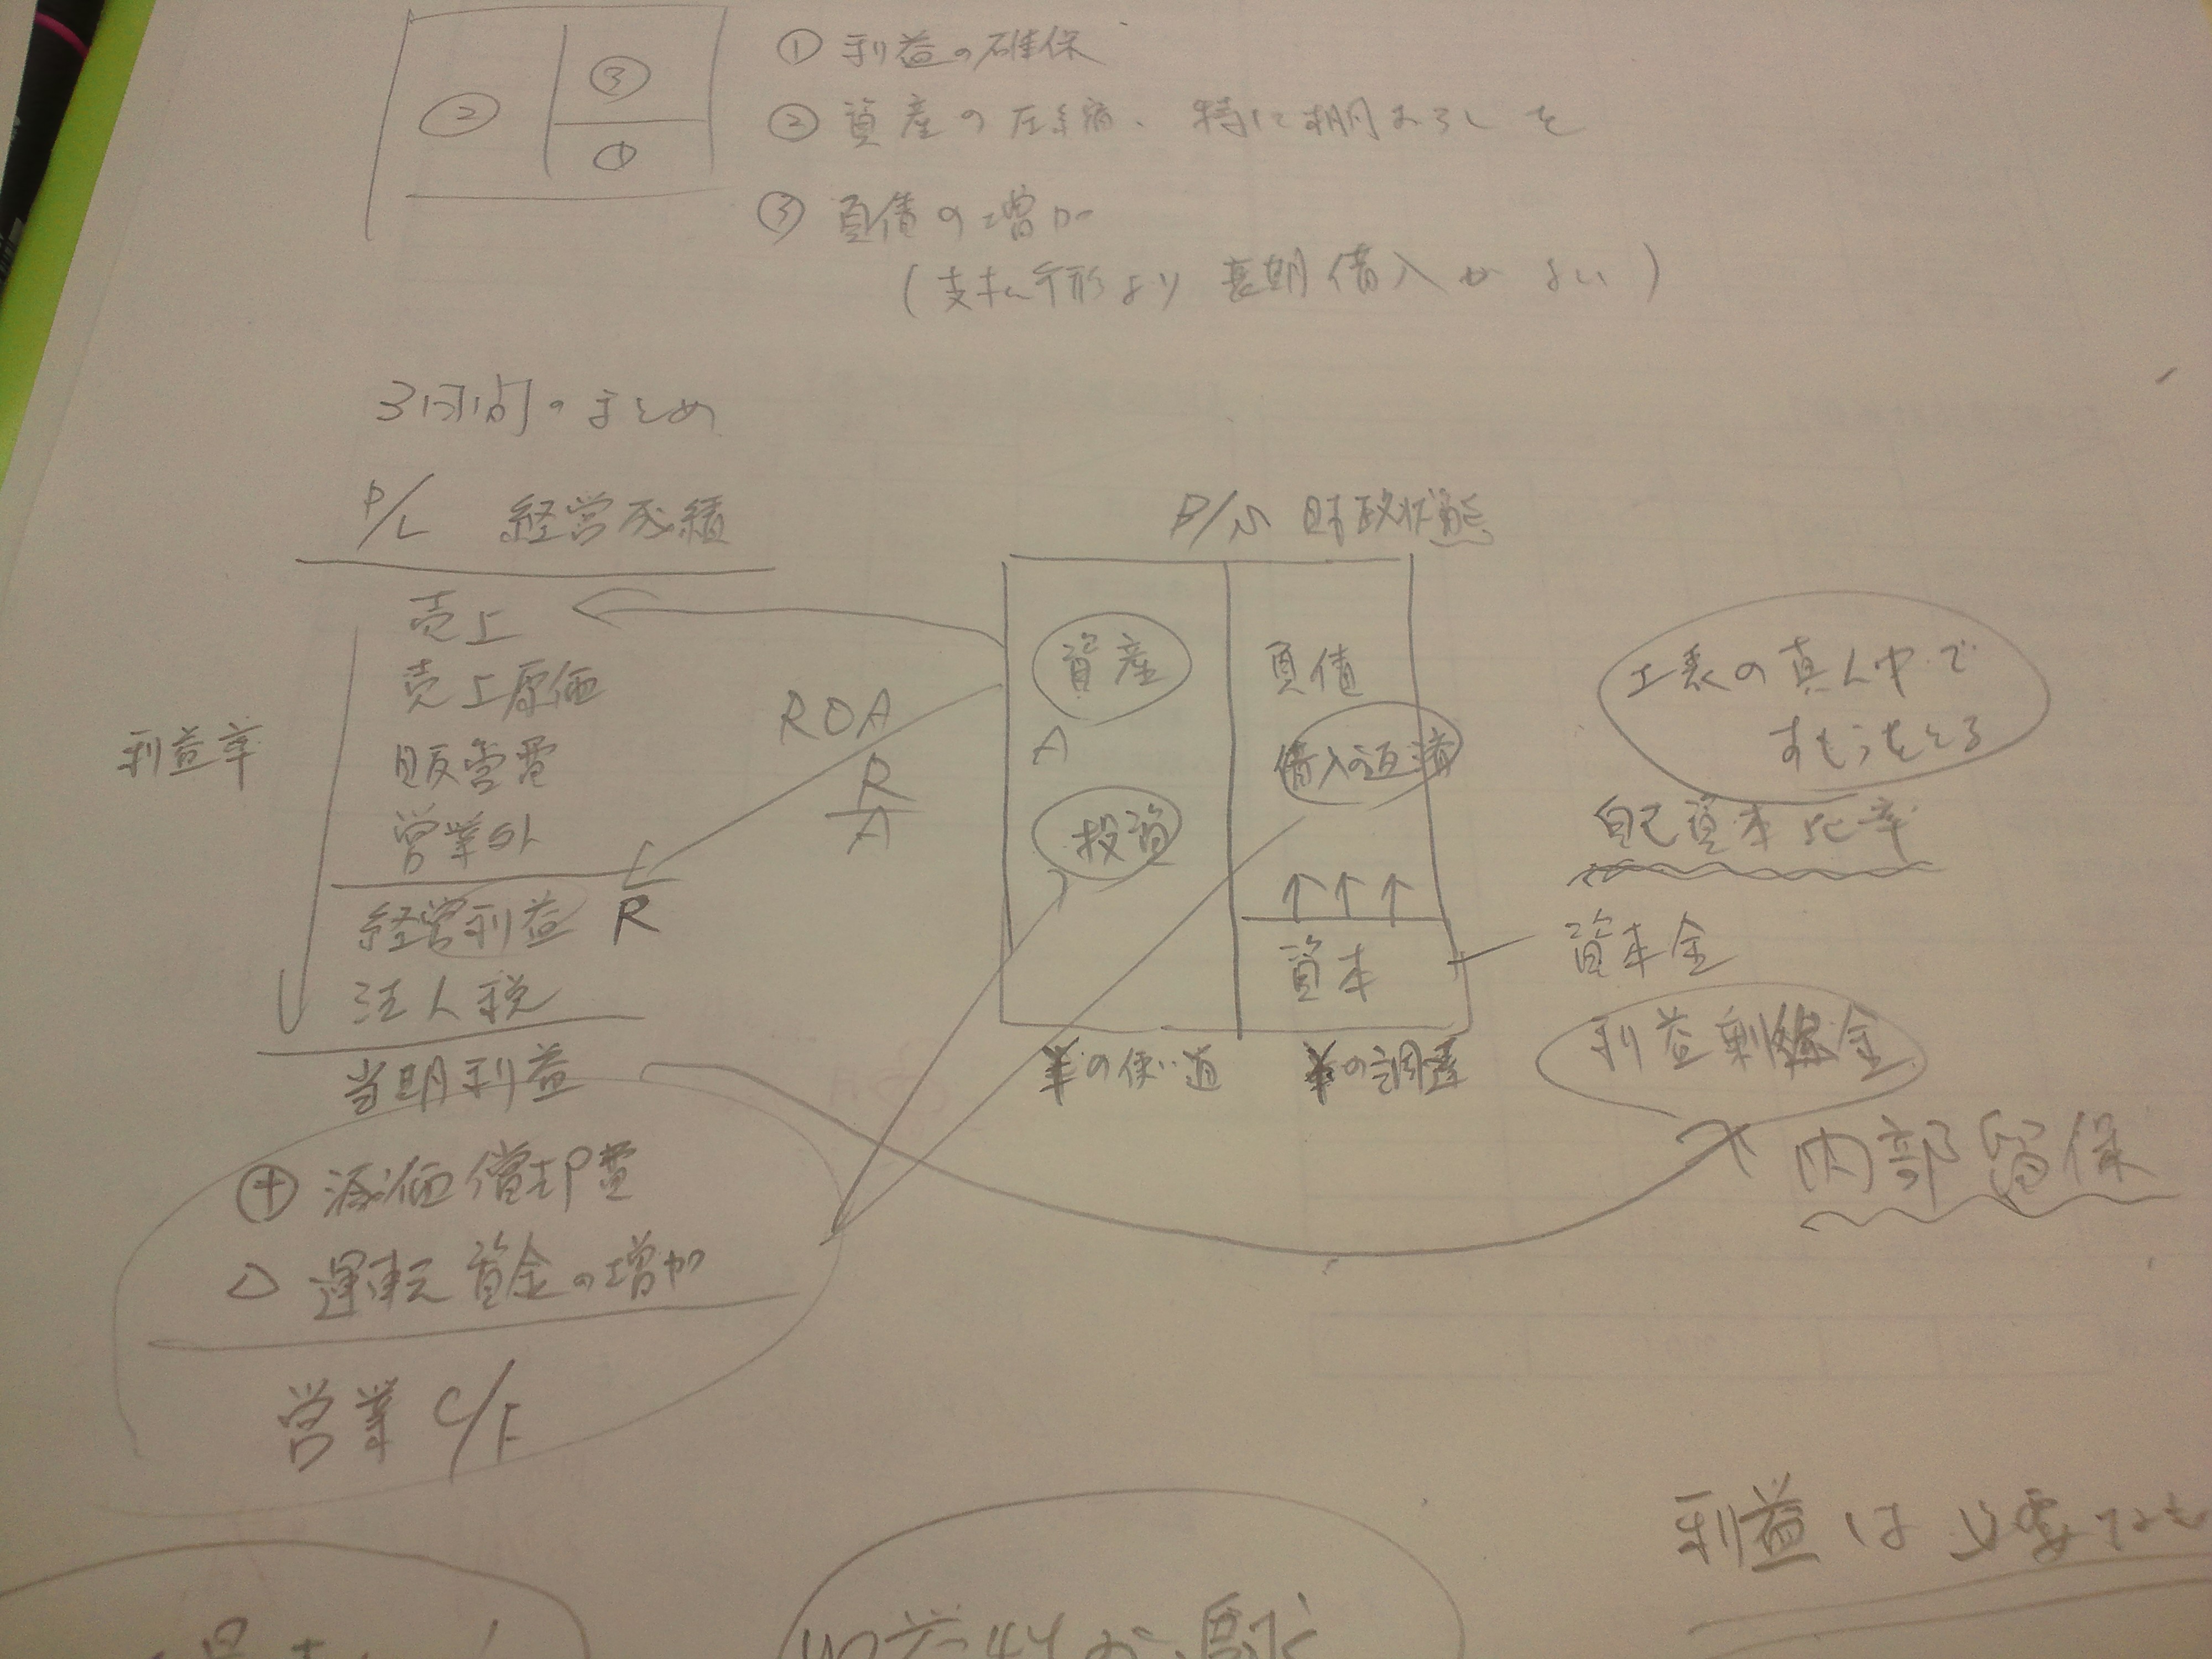 ② ③ ①
① 利益の確保
② 資産の圧縮、特に棚おろしを
③ 負債の増加
(支払手形より長期借入がよい)
3日間のまとめ
P/L 経営成績
B/S 財政状態
売上
売上原価
販管費
営業外
経営利益 R
法人税
当期利益
利益率
ROA
R
A
資産
A
投資
負債
借入の返済
↑↑↑
資本
¥の使い道
¥の調達
土俵の真ん中で
すもうをとる
自己資本比率
資本金
利益剰余金
内部留保
⊕ 減価償却費
△ 運転資金の増加
営業 C/F
利益は必要なも